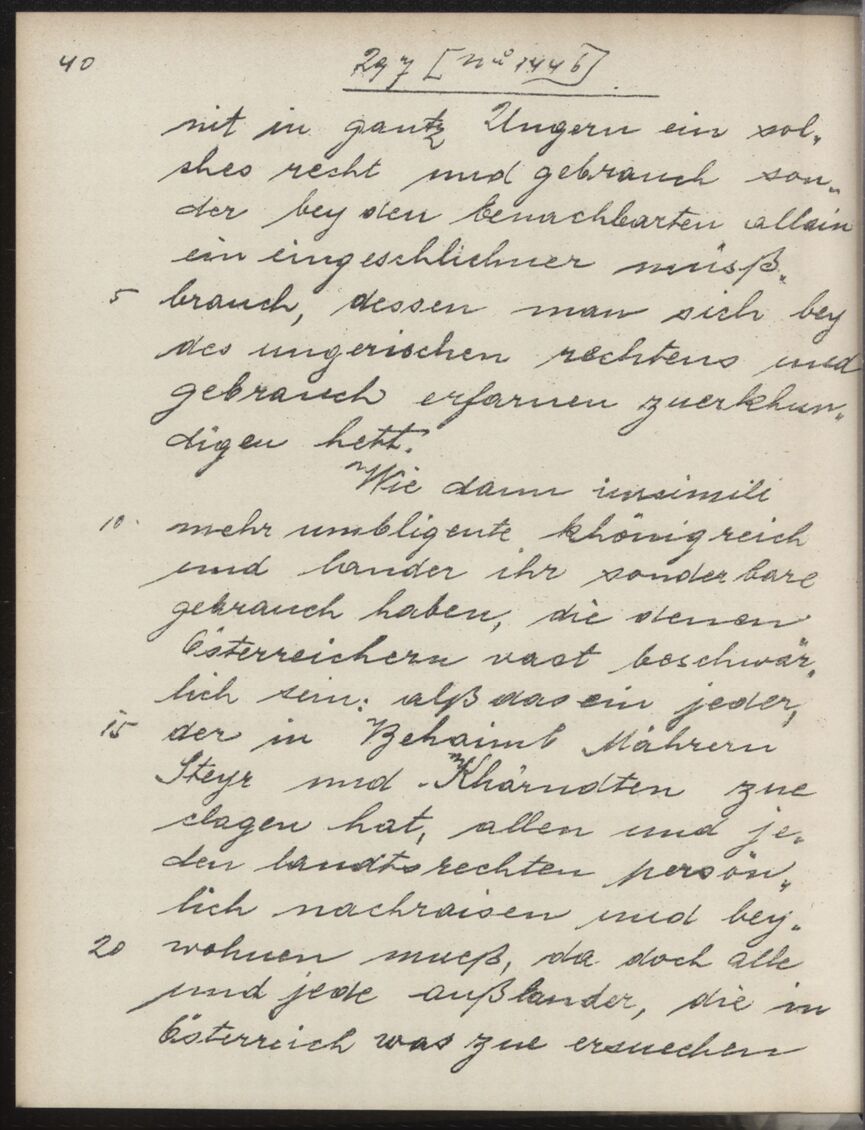 40 297 [Nro 1446]
nit in gantz Ungern ein sol„
ches recht und gebrauch son„
der bey den benachbarten allain
ein eingeschlichner müsß„
5 brauch, dessen man sich bey
des ungerischen rechtens und
gebrauch erfarnen zuerkhun„
digen hett.
Wie dann insimili
10 mehr umbligente khönigreich
und lander ihr sonderbare
gebrauch haben, die denen
Österreichern vast beschwär„
lich sein: alß das ein jeder,
15 der in Behaimb Mährern
Steyr und Khärndten zue
clagen hat, allen und je„
den landtsrechten persön„
lich nachraisen und bey„
20 wohnen mueß, da doch alle
und jede außlander, die in
Österreich was zue ersuechen